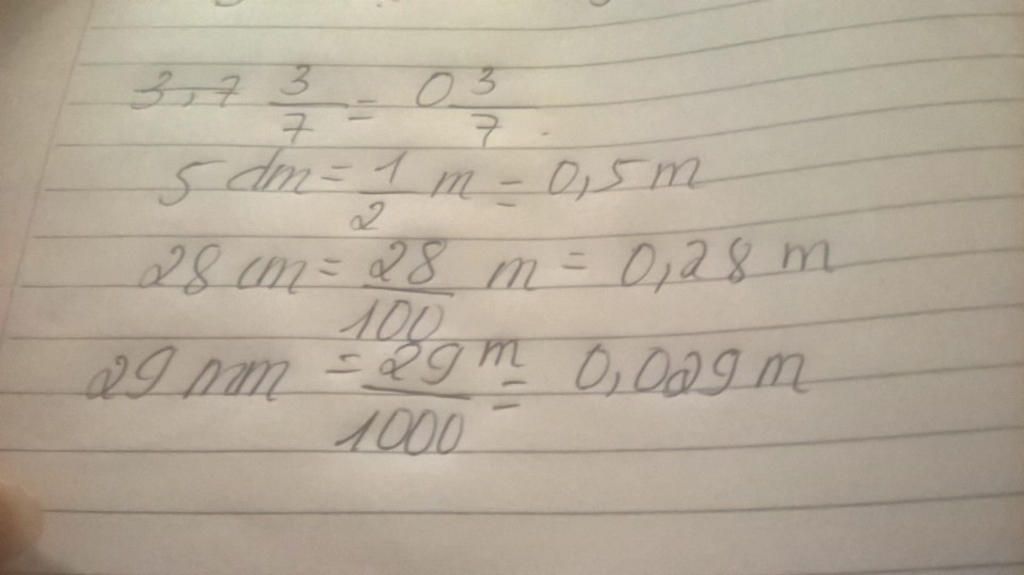 3,7 3/7 = 0 3/7
5 dm = 1/2 m = 0,5 m
28 cm = 28/100 m = 0,28 m
29 mm = 29/1000 m = 0,029 m